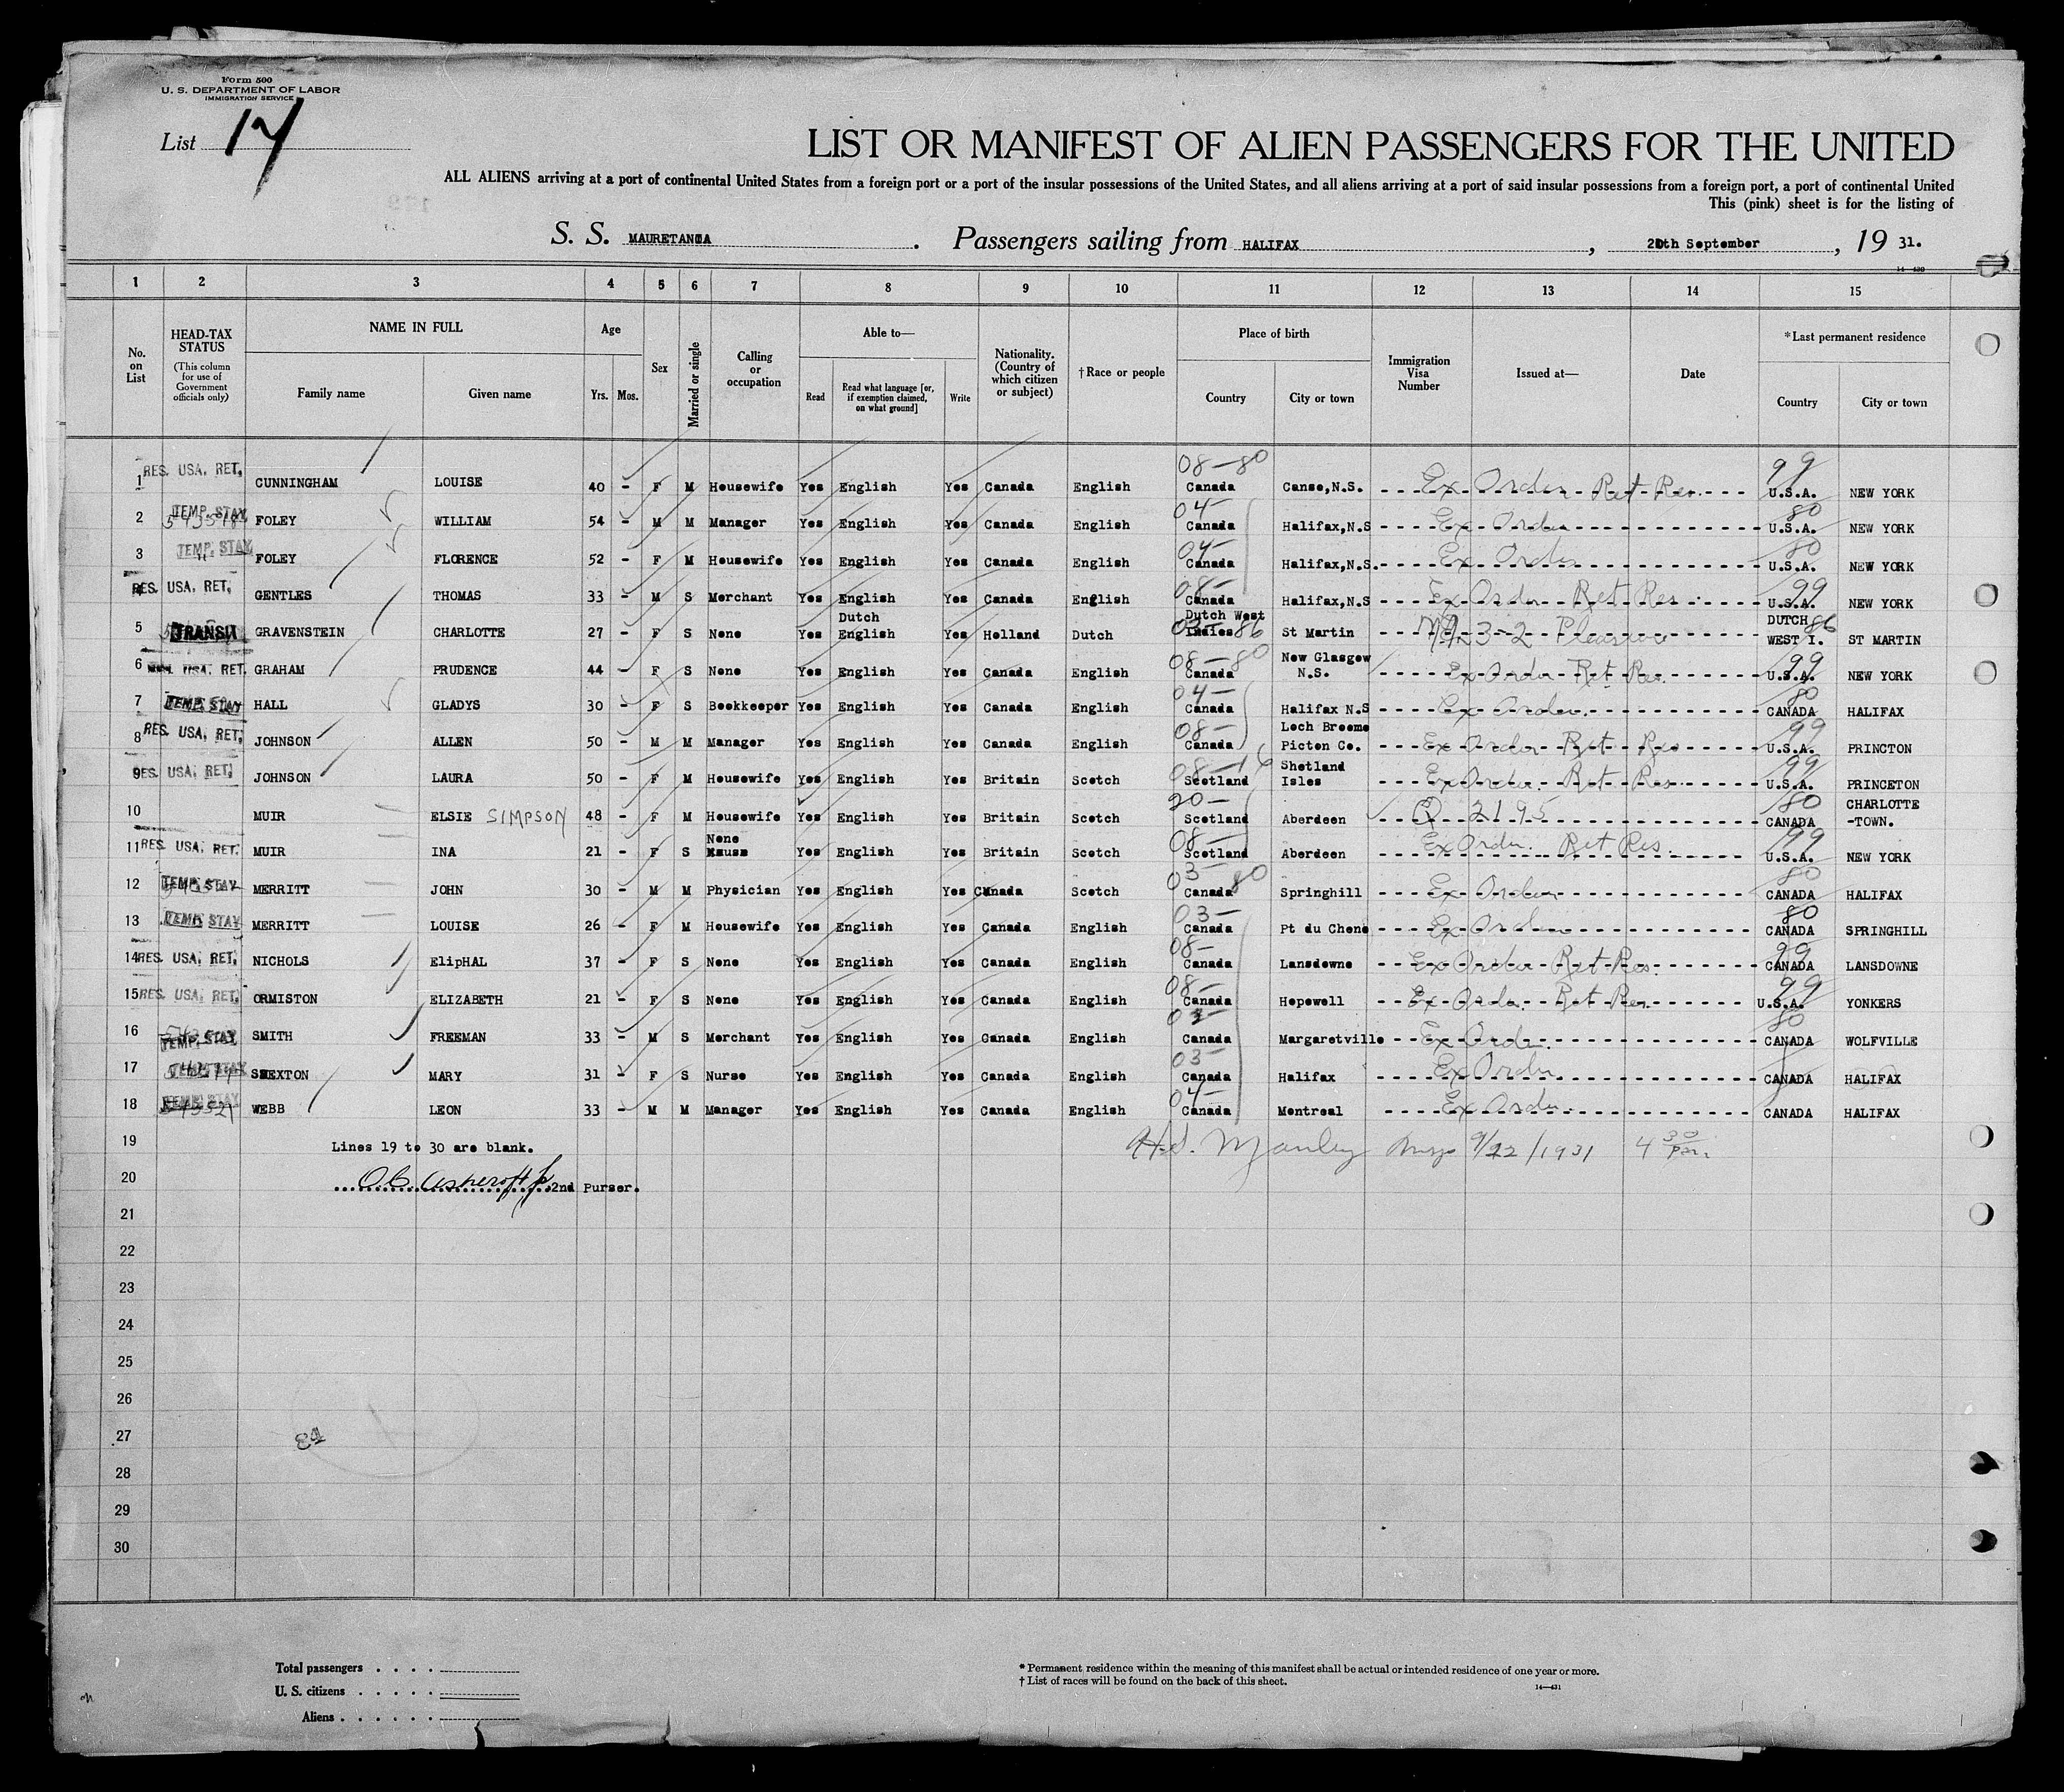 Form 500
U. S. DEPARTMENT OF LABOR
IMMIGRATION SERVICE
List 17
LIST OR MANIFEST OF ALIEN PASSENGERS FOR THE UNITED
ALL ALIENS arriving at a port of continental United States from a foreign port or a port of the insular possessions of the United States, and all aliens arriving at a port of said insular possessions from a foreign port, a port of continental United
This (pink) sheet is for the listing of
S. S. MAURETANIA . Passengers sailing from HALIFAX , 20th September , 19 31.
14—430
1 2 3 4 5 6 7 8 9 10 11 12 13 14 15
No. on List HEAD-TAX STATUS (This column for use of Government officials only) NAME IN FULL Family name Given name Age Yrs. Mos. Sex Married or single Calling or occupation Able to— Read Read what language [or, if exemption claimed, on what ground] Write Nationality. (Country of which citizen or subject) †Race or people Place of birth Country City or town Immigration Visa Number Issued at— Date *Last permanent residence Country City or town
1 RES. USA. RET. CUNNINGHAM LOUISE 40 - F M Housewife Yes English Yes Canada English 08-80 Canada Canso,N.S. Ex Order Ret Res. 99 U.S.A. NEW YORK
2 TEMP. STAY FOLEY WILLIAM 54 - M M Manager Yes English Yes Canada English 04- Canada Halifax,N.S Ex Order 80 U.S.A. NEW YORK
3 TEMP. STAY " FOLEY FLORENCE 52 - F M Housewife Yes English Yes Canada English 04- Canada Halifax,N.S. Ex Order 80 U.S.A. NEW YORK
4 RES. USA. RET. GENTLES THOMAS 33 - M S Merchant Yes English Yes Canada English 08- Canada Halifax,N.S Ex Order Ret Res. 99 U.S.A. NEW YORK
5 TRANSIT GRAVENSTEIN CHARLOTTE 27 - F S None Yes Dutch English Yes Holland Dutch Dutch West Indies 86 St Martin 3-2 Pleasure DUTCH WEST I. 86 ST MARTIN
6 USA. RET. GRAHAM PRUDENCE 44 - F S None Yes English Yes Canada English 08-80 Canada New Glasgow N.S. Ex Order Ret Res. 99 U.S.A. NEW YORK
7 TEMP. STAY HALL GLADYS 30 - F S Bookkeeper Yes English Yes Canada English 04- Canada Halifax N.S Ex Order. 80 CANADA HALIFAX
8 RES. USA. RET. JOHNSON ALLEN 50 - M M Manager Yes English Yes Canada English 08- Canada Loch Broome Picton Co. Ex Order Ret Res 99 U.S.A. PRINCTON
9 RES. USA. RET. JOHNSON LAURA 50 - F M Housewife Yes English Yes Britain Scotch 08-16 Scotland Shetland Isles Ex Order Ret Res 99 U.S.A. PRINCETON
10 MUIR ELSIE SIMPSON 48 - F M Housewife Yes English Yes Britain Scotch 20- Scotland Aberdeen Q 2195 80 CANADA CHARLOTTE -TOWN.
11 RES. USA. RET. MUIR INA 21 - F S None Yes English Yes Britain Scotch 08- Scotland Aberdeen Ex Order. Ret Res. 99 U.S.A. NEW YORK
12 TEMP. STAY MERRITT JOHN 30 - M M Physician Yes English Yes Canada Scotch 03- Canada 80 Springhill Ex Order 80 CANADA HALIFAX
13 TEMP. STAY MERRITT LOUISE 26 - F M Housewife Yes English Yes Canada English 03- Canada Pt du Chene Ex Order 80 CANADA SPRINGHILL
14 RES. USA. RET. NICHOLS ElipHAL 37 - F S None Yes English Yes Canada English 08- Canada Lansdowne Ex Order Ret Res. 99 CANADA LANSDOWNE
15 RES. USA. RET. ORMISTON ELIZABETH 21 - F S None Yes English Yes Canada English 08- Canada Hopewell Ex Order. Ret Res. 99 U.S.A. YONKERS
16 TEMP. STAY SMITH FREEMAN 33 - M S Merchant Yes English Yes Canada English 03- Canada Margaretville Ex Order. 80 CANADA WOLFVILLE
17 TEMP. STAY SEXTON MARY 31 - F S Nurse Yes English Yes Canada English 03- Canada Halifax Ex Order CANADA HALIFAX
18 TEMP. STAY WEBB LEON 33 - M M Manager Yes English Yes Canada English 04- Canada Montreal Ex Order. CANADA HALIFAX
19 Lines 19 to 30 are blank. H.S. Manley Insp 9/22/1931 4 30 P.m.
20 O.C. Ashcroft 2nd Purser.
21
22
23
24
25
26
27 84
28
29
30
Total passengers . . . .
U. S. citizens . . . . .
Aliens . . . . . .
* Permanent residence within the meaning of this manifest shall be actual or intended residence of one year or more.
† List of races will be found on the back of this sheet.
14—431